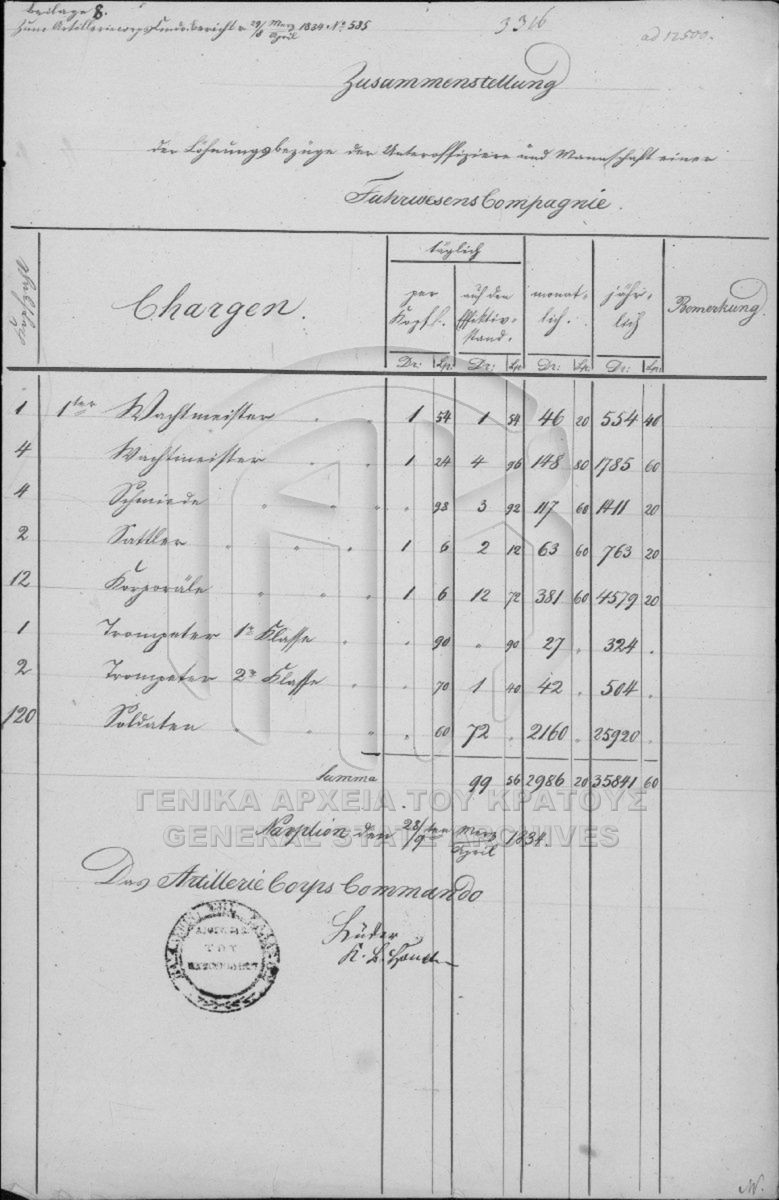 Beilage 8.
zum Artilleriecorps Cmdo. bericht v. 29/8 März/April 1834 No 585
3316
ad 12500.
Zusammenstellung
der Löhnungsbezüge der Unteroffiziere und Mannschaft einer
Fuhrwesens Compagnie.
Chargen. täglich per Kopf. auf den Effektiv-stand. monat-lich. jähr-lich Bemerkung.
Dr: Lp: Dr: Lp: Dr: Lp: Dr: Lp:
1 1ter Wachtmeister 1 54 1 54 46 20 554 40
4 Wachtmeister 1 24 4 96 148 80 1785 60
4 Schmiede " 98 3 92 117 60 1411 20
2 Sattler 1 6 2 12 63 60 763 20
12 Korporäle 1 6 12 72 381 60 4579 20
1 Trompeter 1r Klasse " 90 " 90 27 " 324 .
2 Trompeter 2r Klasse " 70 1 40 42 . 504 .
120 Soldaten " 60 72 . 2160 " 25920 .
Summa 99 56 2986 20 35841 60
ΓΕΝΙΚΑ ΑΡΧΕΙΑ ΤΟΥ ΚΡΑΤΟΥΣ
GENERAL STATE ARCHIVES
Nauplion den 28/9ten März/April 1834.
Das Artillerie Corps Commando
Lüder
ΤΟΥ